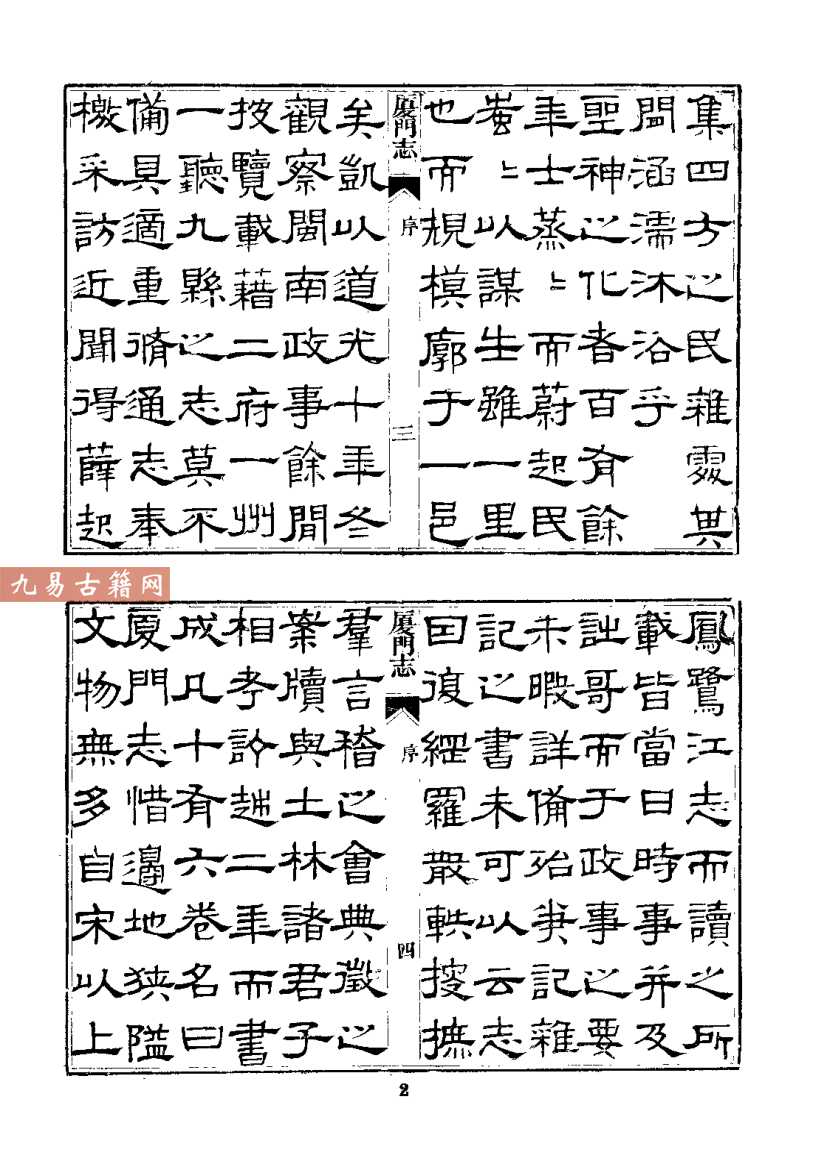 集四方之民雜處其
閒涵濡沐浴乎
聖神之化者百有餘
年士蒸〻而蔚起民
蚩〻以謀生雖一里
也而規模廓于一邑
廈門志
序
三
矣凱以道光十年冬
觀察閩南政事餘閒
按覽載藉二府一州
一聽九縣之志莫不
備具適重脩通志奉
檄采訪近聞得薛起
鳳鷺江志而讀之所
載皆當日時事并及
詘哥而于政事之要
未暇詳備殆吏記雜
記之書未可以云志
因復網羅散軼搜摭
廈門志
序
四
羣言稽之會典徵之
案牘與土林諸君子
相考訂越二年而書
成凡十有六卷名曰
廈門志惜邊地狹隘
文物無多自宋以上
九易古籍网
2